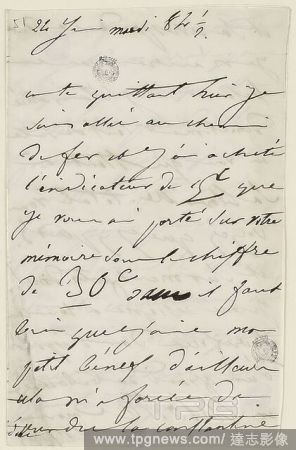 24 Juin mardi 8h ½
en te quittant hier je
suis allée au chemin
de fer où j'ai acheté
l'indicateur de que
je vous ai porté sur votre
mémoire sous le chiffre
de 30c il faut
bien que j'aie mon
petit bénef d'ailleurs
cela m'a forcée de
la
TPG
www.tpgnews.com / 達志影像